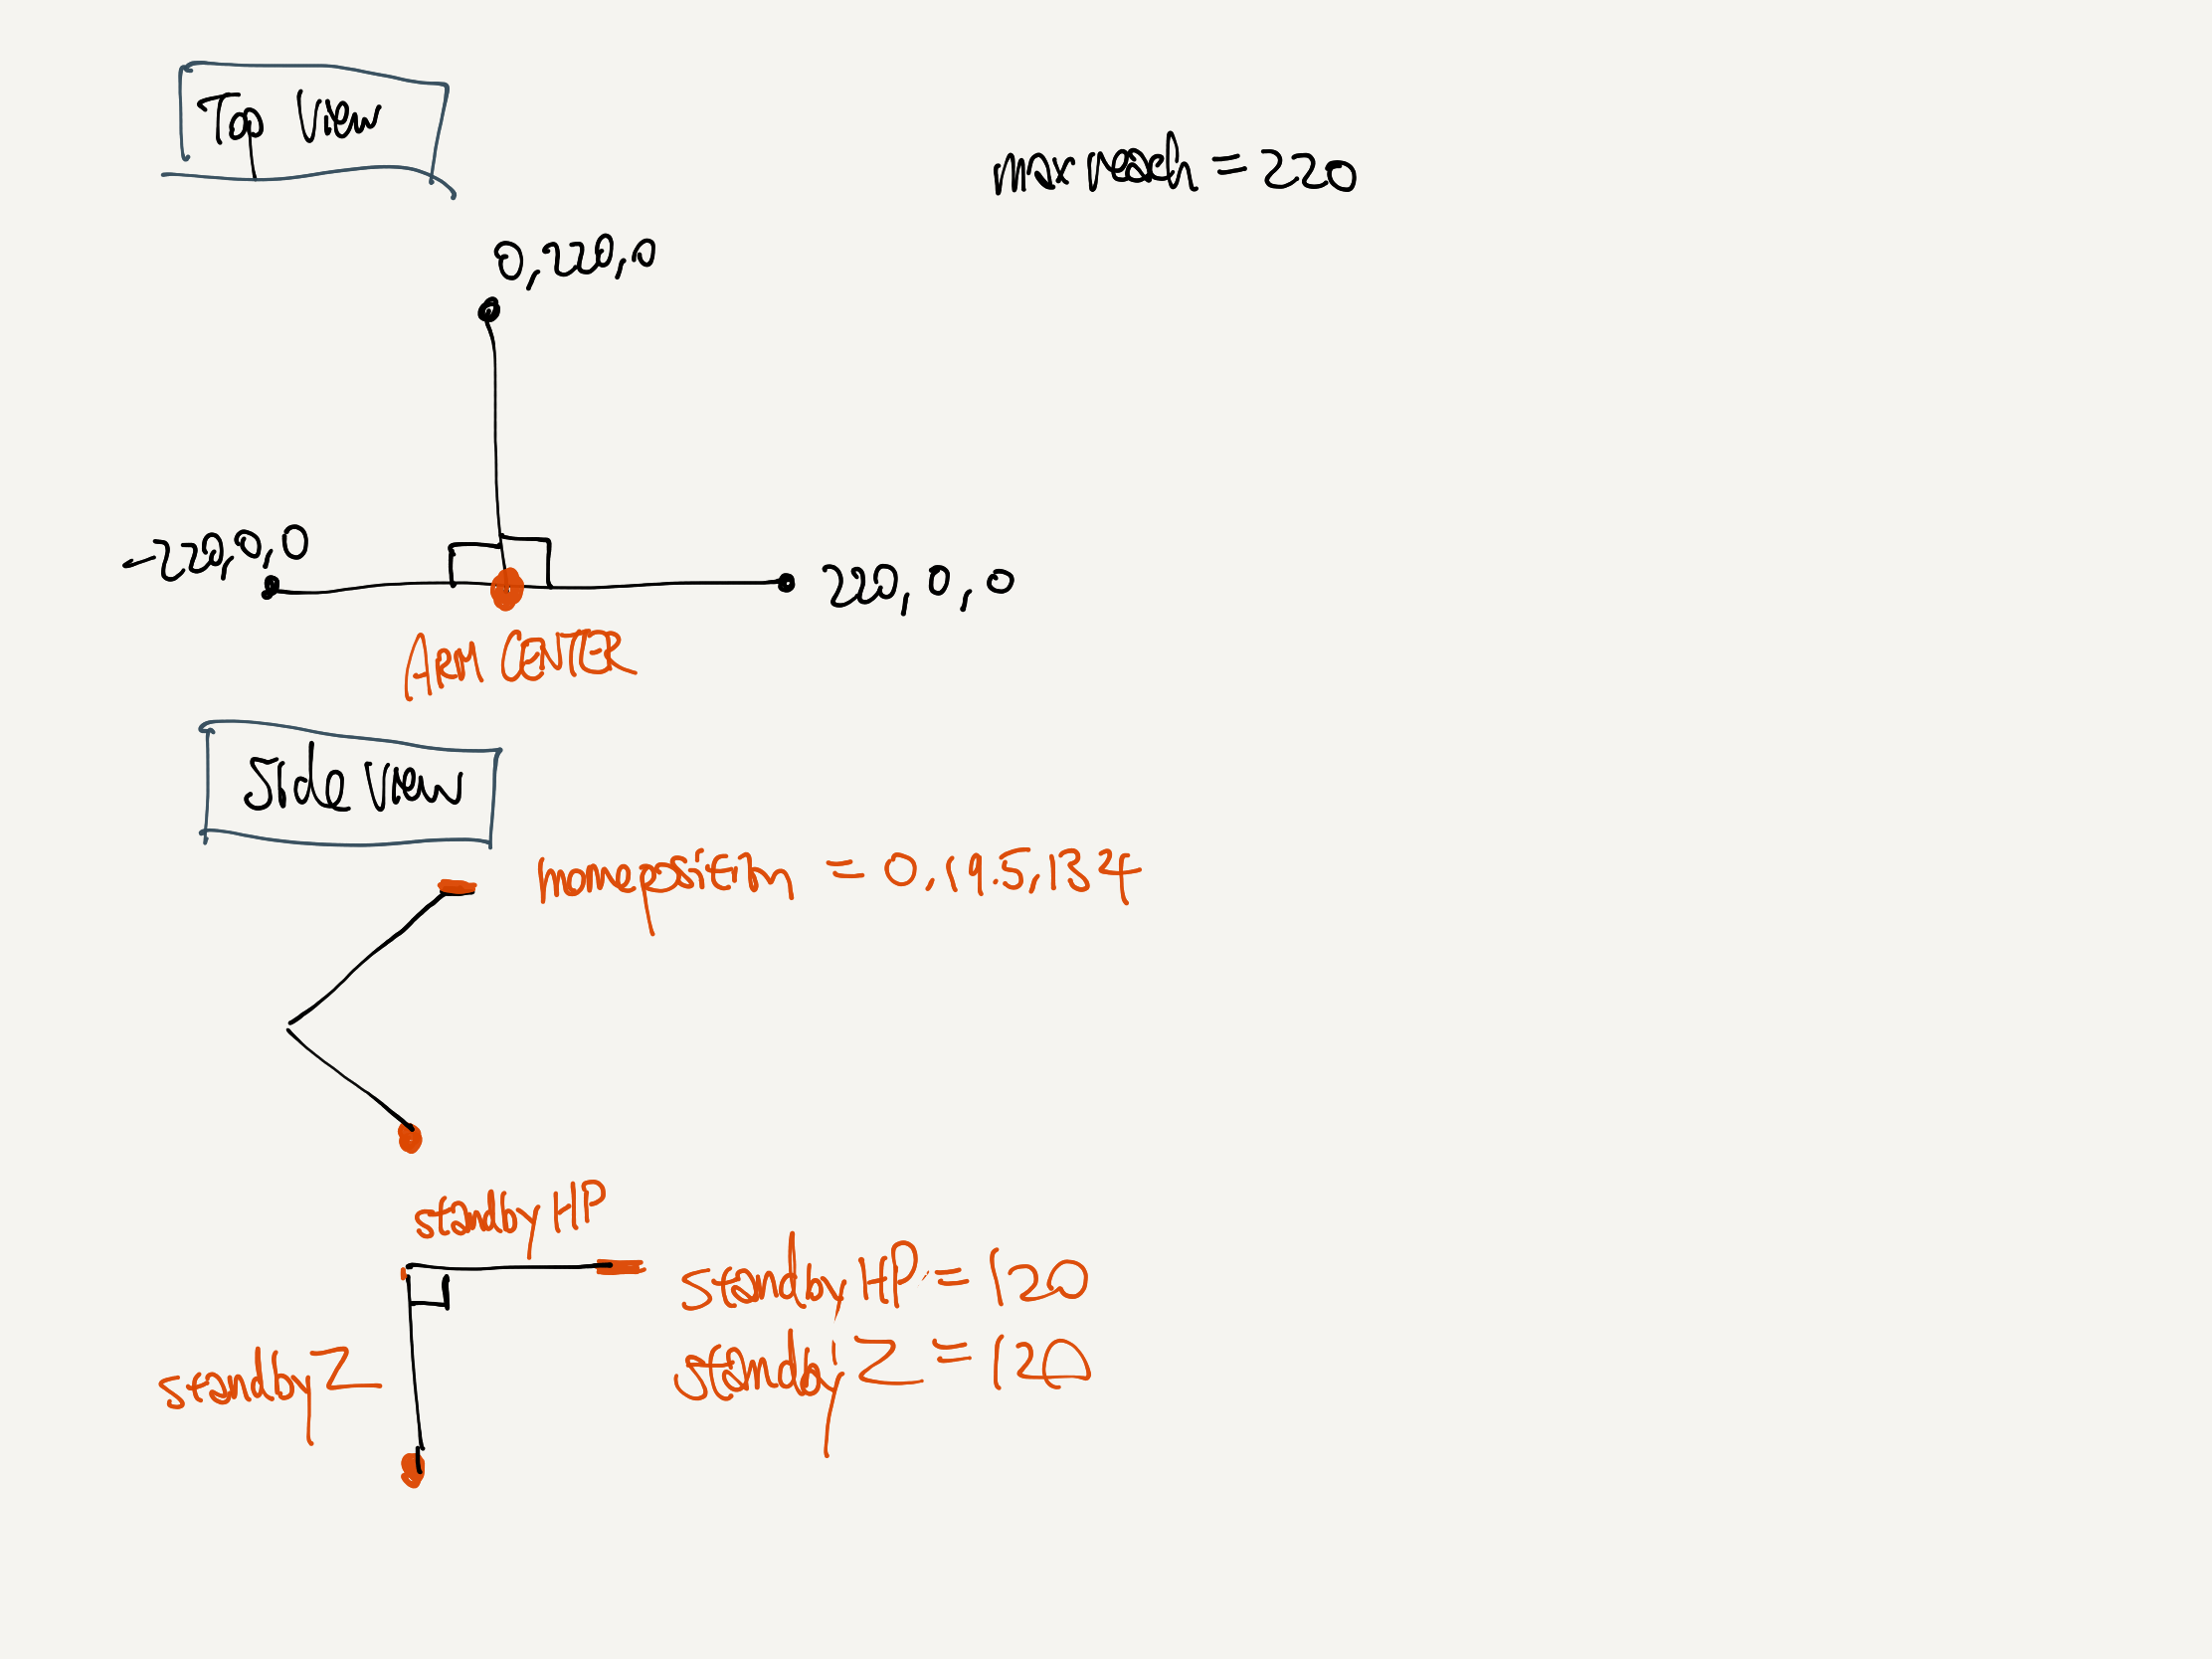 Top View
max reach = 220
0,220,0
-220,0,0
220,0,0
ARM CENTER
Side View
home position = 0,19.5,134
standby HP
standby HP = 120
standby Z
standby Z = 120